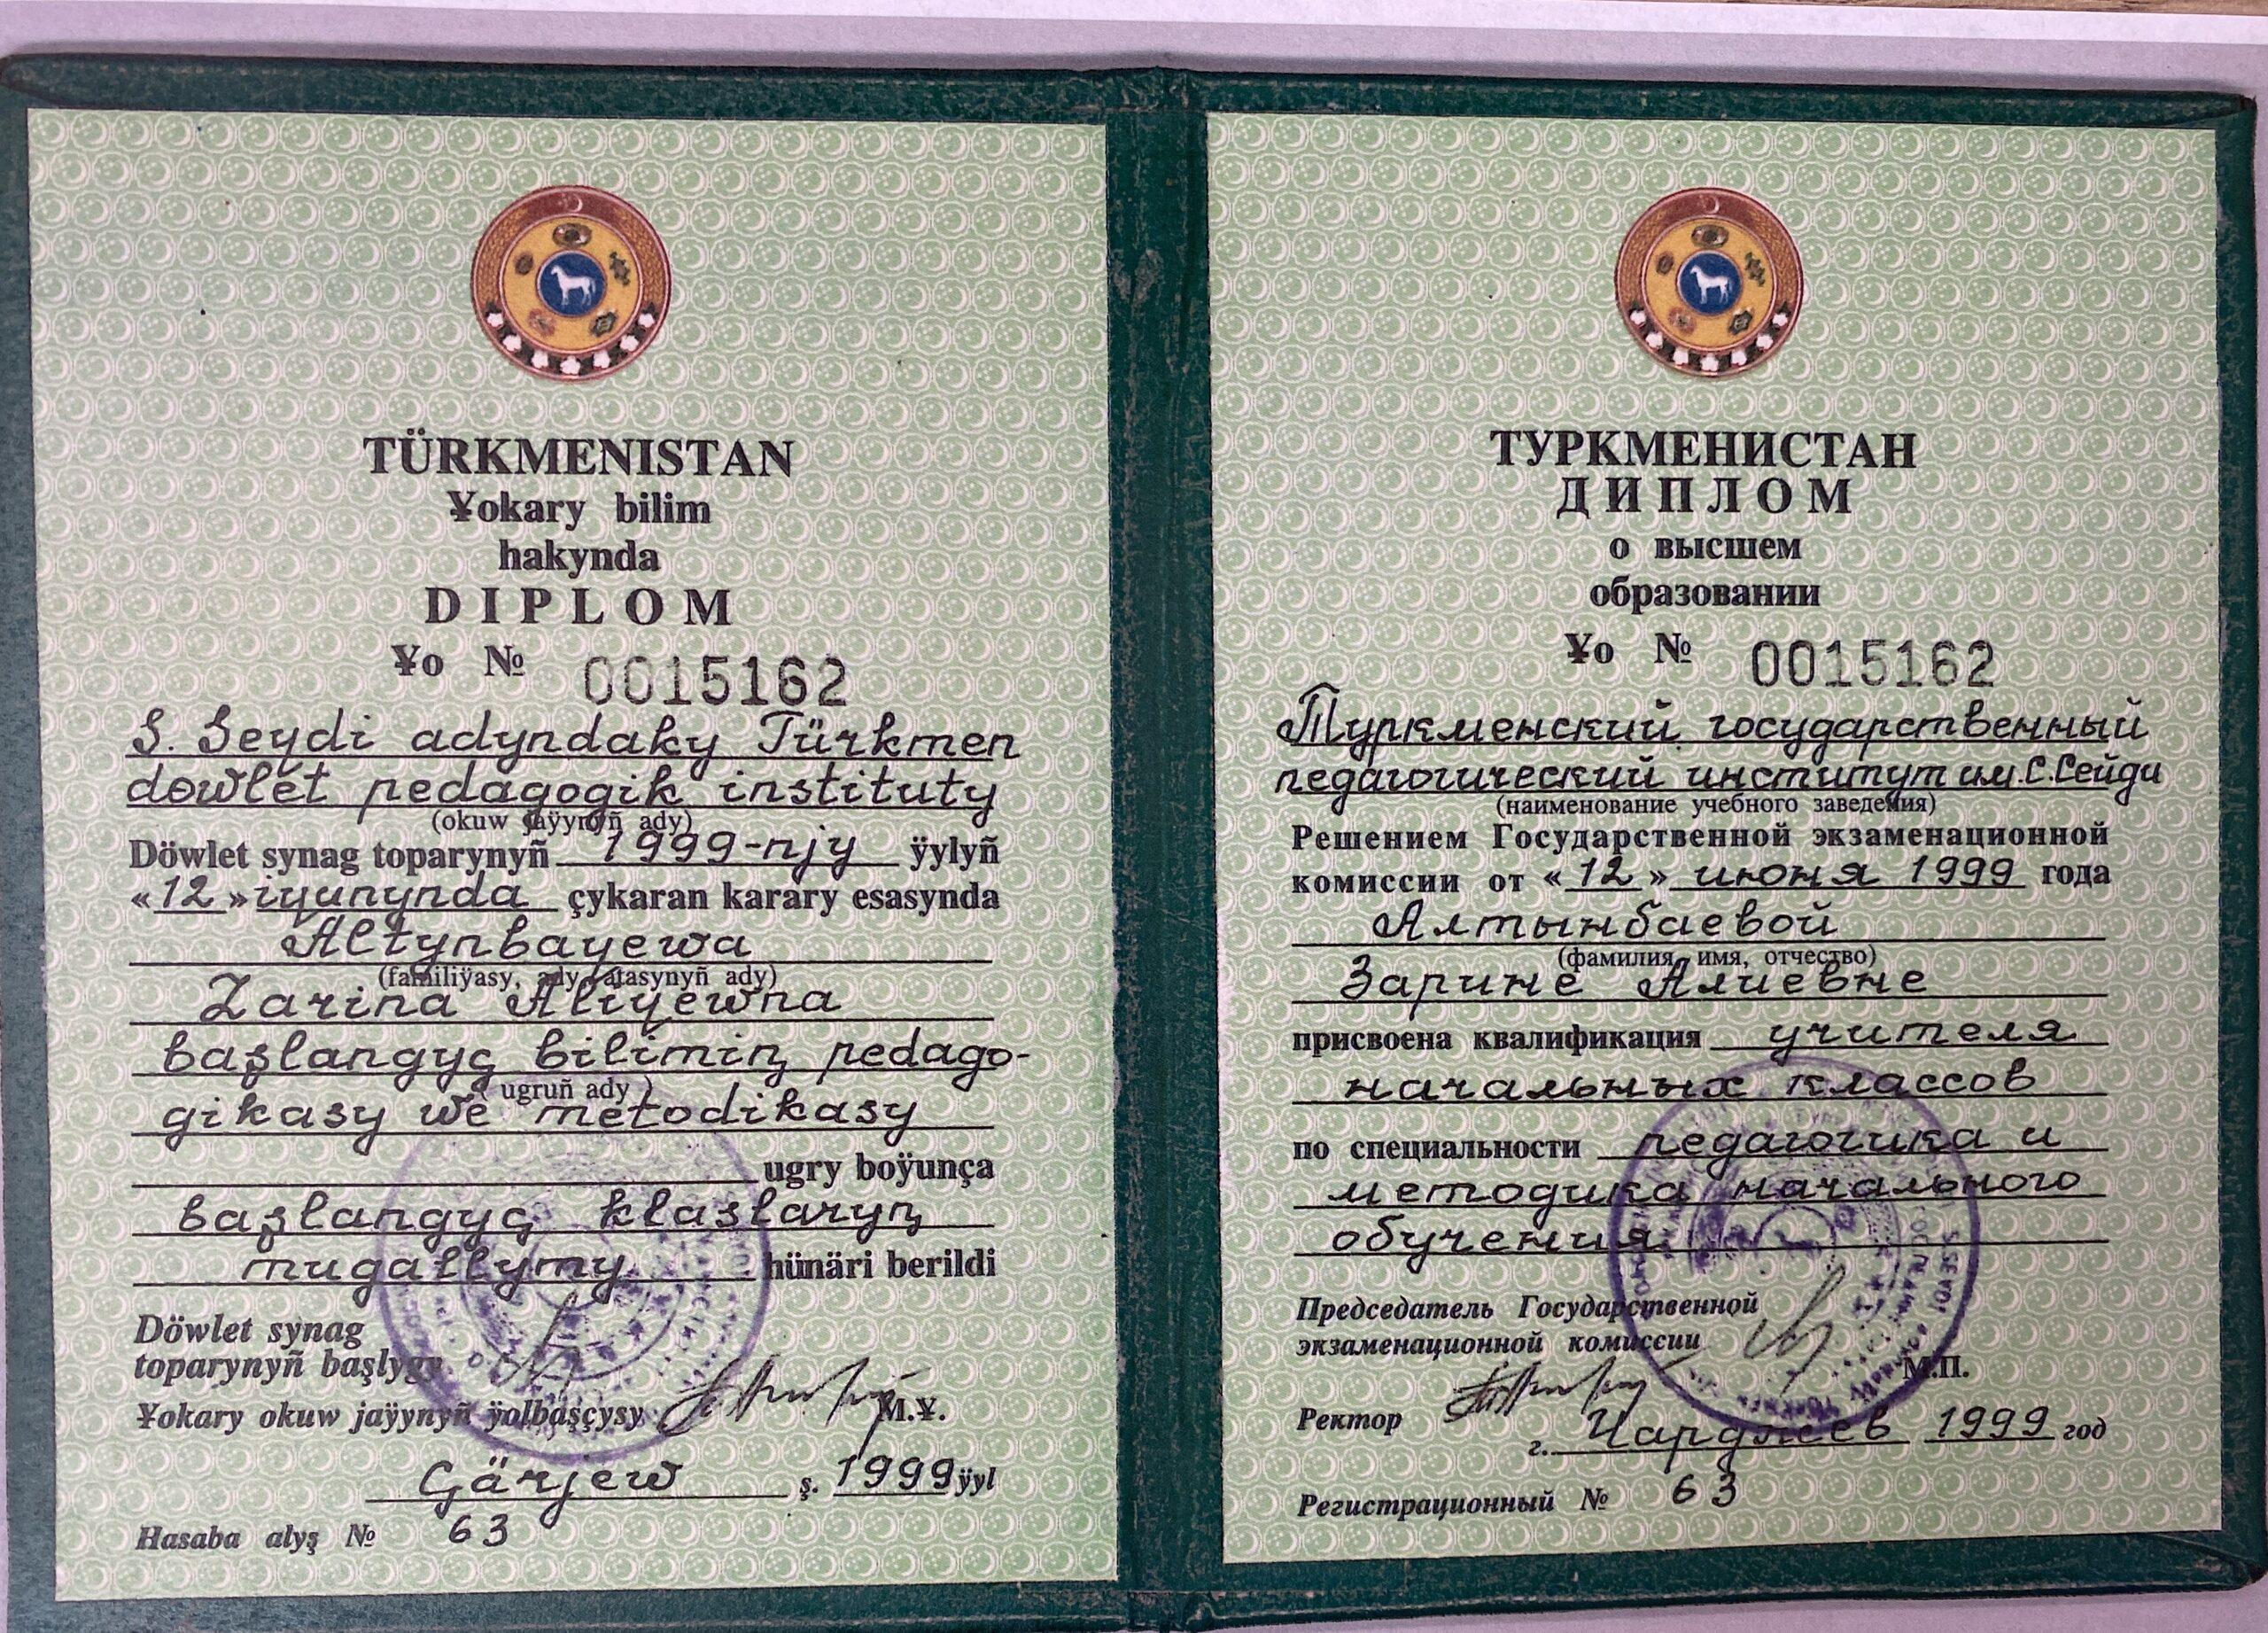 TÜRKMENISTAN
¥okary bilim
hakynda
DIPLOM
¥o № 0015162
S. Seydi adyndaky Türkmen
döwlet pedagogik instituty
(okuw jaÿynyñ ady)
Döwlet synag toparynyñ 1999-njy ÿylyñ
«12» iyunynda çykaran karary esasynda
Altynbayewa
(familiÿasy, ady, atasynyñ ady)
Zarina Aliyewna
başlangyç bilimiň pedago-
(ugruñ ady)
gikasy we metodikasy
ugry boÿunça
başlangyç klaslaryň
mugallymy hünäri berildi
Döwlet synag
toparynyñ başlygy
¥okary okuw jaÿynyñ ÿolbaşçysy
M.¥.
Çärjew ş. 1999 ÿyl
Hasaba alyş № 63
ТУРКМЕНИСТАН
ДИПЛОМ
о высшем
образовании
¥o № 0015162
Туркменский государственный
педагогический институт им. С. Сейди
(наименование учебного заведения)
Решением Государственной экзаменационной
комиссии от «12» июня 1999 года
Алтынбаевой
(фамилия, имя, отчество)
Зарине Алиевне
присвоена квалификация учителя
начальных классов
по специальности педагогика и
методика начального
обучения
Председатель Государственной
экзаменационной комиссии
М.П.
Ректор
г. Чарджев 1999 год
Регистрационный № 63